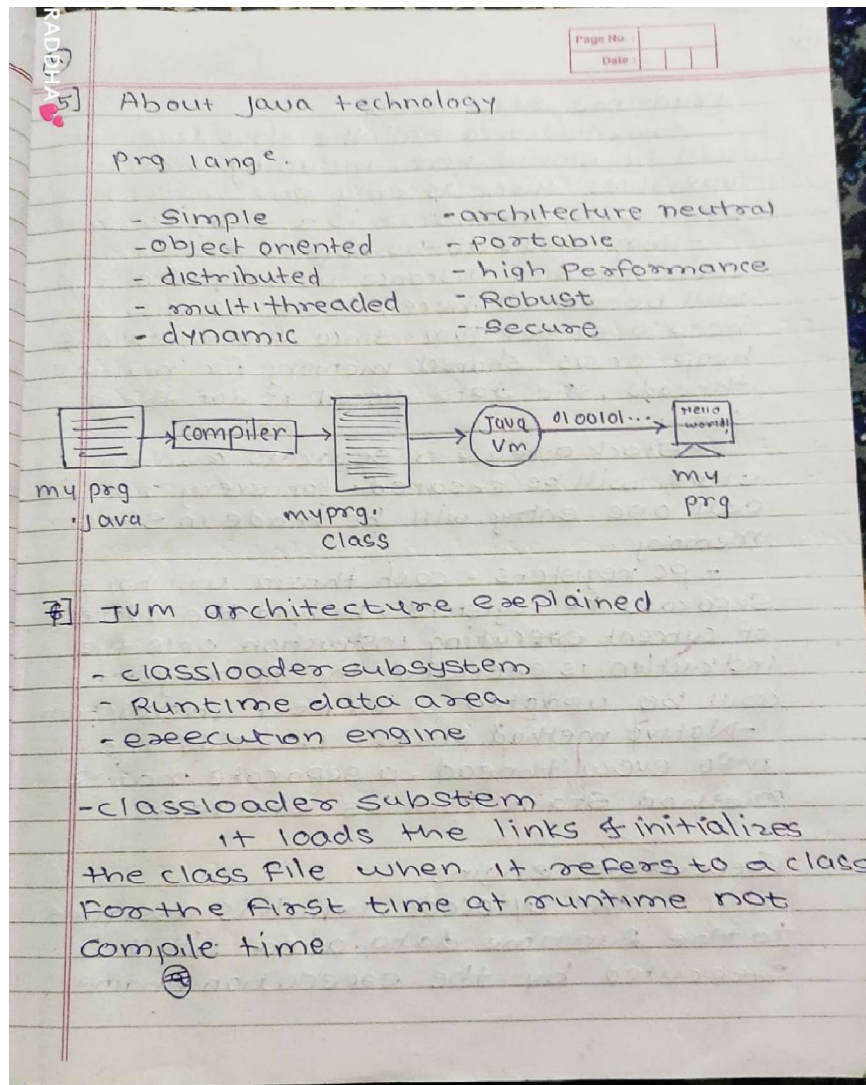 RADDHA
Page No. :
Date :
5] About Java technology
prg lang e.
- Simple
- object oriented
- distributed
- multithreaded
- dynamic
- architecture neutral
- portable
- high performance
- Robust
- Secure
compiler
Java
Vm
0100101...
Hello
world!
my prg
.java
myprg.
class
my
prg
] JVM architecture exeplained
- classloader subsystem
- Runtime data area
- exeecution engine
- classloader substem
it loads the links & initializes
the class file when it refers to a class
For the first time at runtime not
compile time